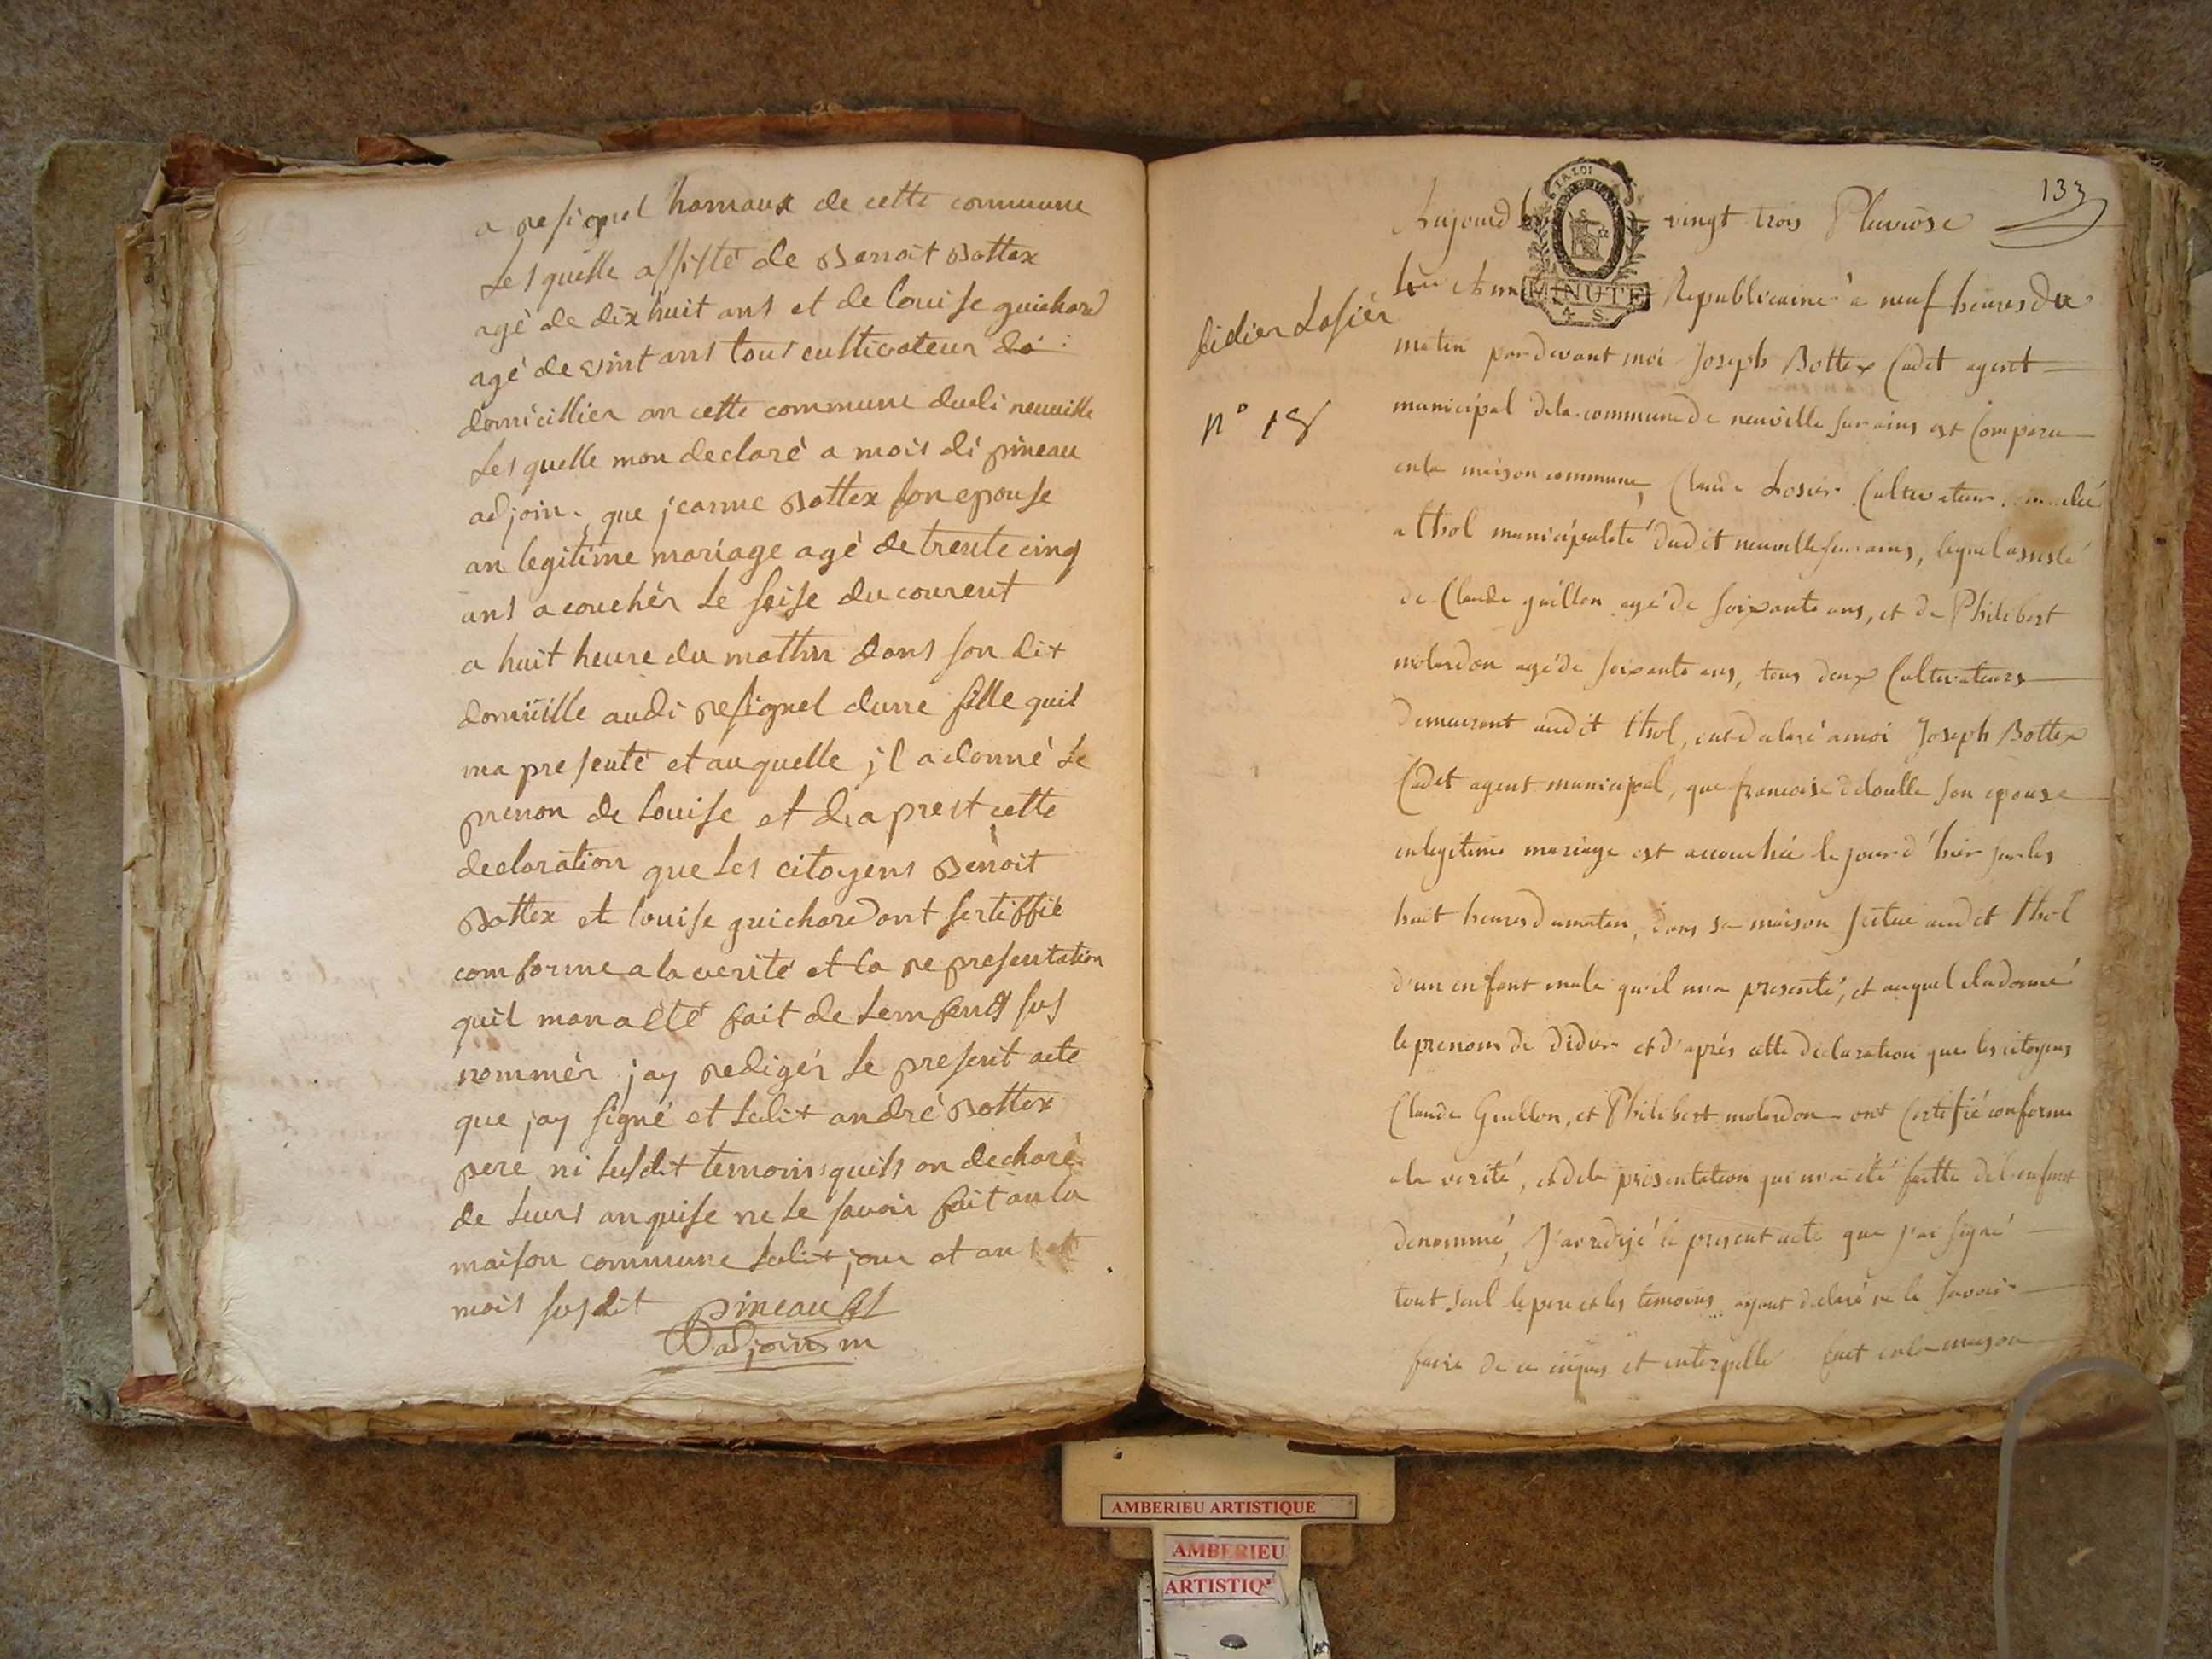 a resignel hamaux de cette commune
Lesquelle assisté de Benoit Bottex
agé de dix huit ans et de louise guichard
agé de vint ans tous cultivateur de
domicillier an cette commune dudi neuville
Lesquelle mon declaré a mois di pineau
adjoin. que jeanne Bottex son epouse
an legitime mariage agé de trente cinq
ans a couchér le seise du courent
a huit heure du mattin dans son dit
domicille audi resignel dune fille quil
ma presenté et au quelle il a donné le
prenon de louise et diaprest cette
declaration que les citoyens Benoit
Bottex et louise guichard ont sertiffié
comforme a la verité et la representation
quil manaété fait de lemfend sus
nommér jay redigér le present acte
que jay signé et ledit andré Bottex
pere ni lesdit temoins quils on declaré
de leurs anquise ne le savoir fait an la
maison commune ledit jour et an et
mois susdit pineau
adjoins m
133
Aujourd vingt trois Pluviôse
MINUTE
Republicaine à neuf heures du
didier Losier
matin par devant moi Joseph Bottex Cadet agent
n° 18
municipal de la commune de neuville sur ains est Comparu
en la maison commune, Claude Losier Cultivateur
a thol municipalité dudit neuville sur ains, lequel assisté
de Claude guillon agé de soixante ans, et de Philibert
molardon agé de soixante ans, tous deux Cultivateurs
demeurant audit thol, a declaré a moi Joseph Bottex
Cadet agent municipal, que francoise deloulle son epouse
en legitime mariage est accouchée le jour d'hier sur les
huit heures du matin, dans sa maison scitue audit thol
d'un enfant male qu'il m'a presenté, et auquel il a donné
le prenom de didier et d'après cette declaration que les citoyens
Claude Guillon, et Philibert molardon ont Certifié conforme
a la verité, et de la présentation qui m'a été faitte de l'enfant
denommé, J'ai redijé le present acte que j'ai signé
tout seul le pere et les temoins ayant declaré ne le savoir
faire de ce enquis et interpellé fait en la maison
AMBERIEU ARTISTIQUE
AMBERIEU
ARTISTIQ